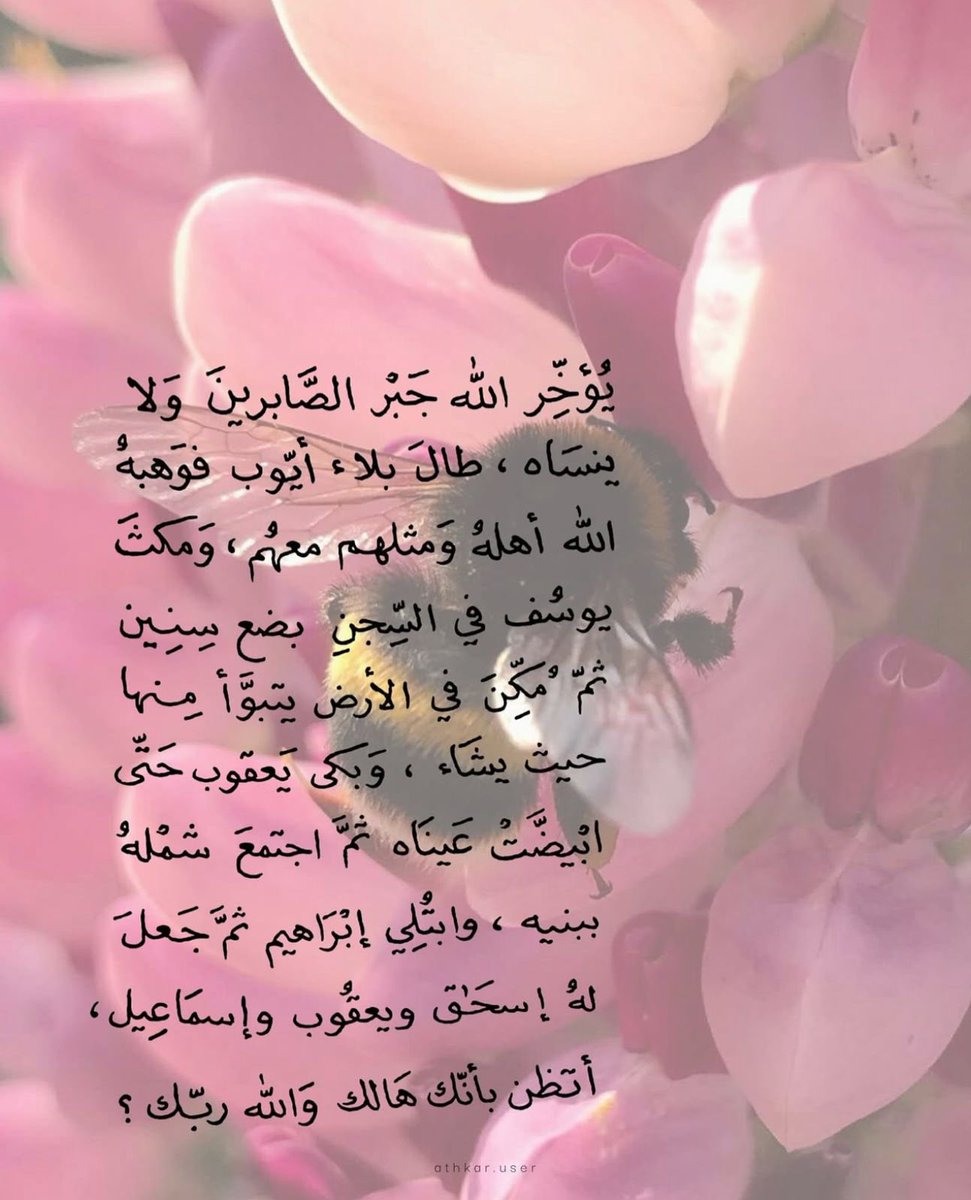 يُؤخِّر الله جَبْر الصَّابرينَ وَلا
ينسَاه ، طالَ بلاء أيّوب فوَهبهُ
الله أهلهُ وَمثلهم معهُم ، وَمكثَ
يوسُف في السِّجنِ بضع سِنِين
ثمّ مُكِّنَ في الأرض يتبوَّأ مِنها
حيث يشَاء ، وَبَكى يَعقوب حَتّى
ابْيضَّتْ عَينَاه ثمَّ اجتمعَ شمْلهُ
ببنيه ، وابتُلِي إبْرَاهيم ثمَّ جَعلَ
لهُ إسحَٰق ويعقُوب وإسمَاعِيل ،
أتظن بأنّك هَالك وَالله ربّك ؟
athkar.user